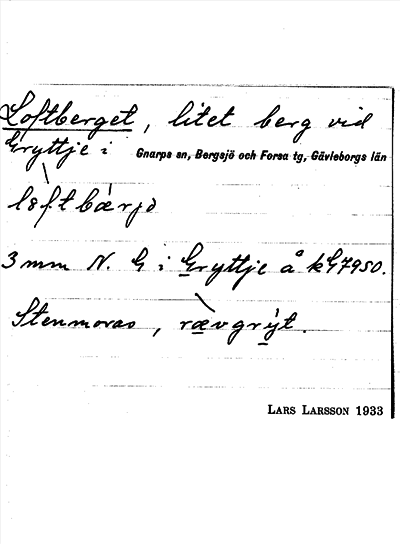 Loftberget, litet berg vid
Gryttje i Gnarps sn, Bergsjö och Forsa tg, Gävleborgs län
løftbærjə
3 mm N. G i Gryttje å k G7950.
Stenmoras, rævgrýt.
LARS LARSSON 1933